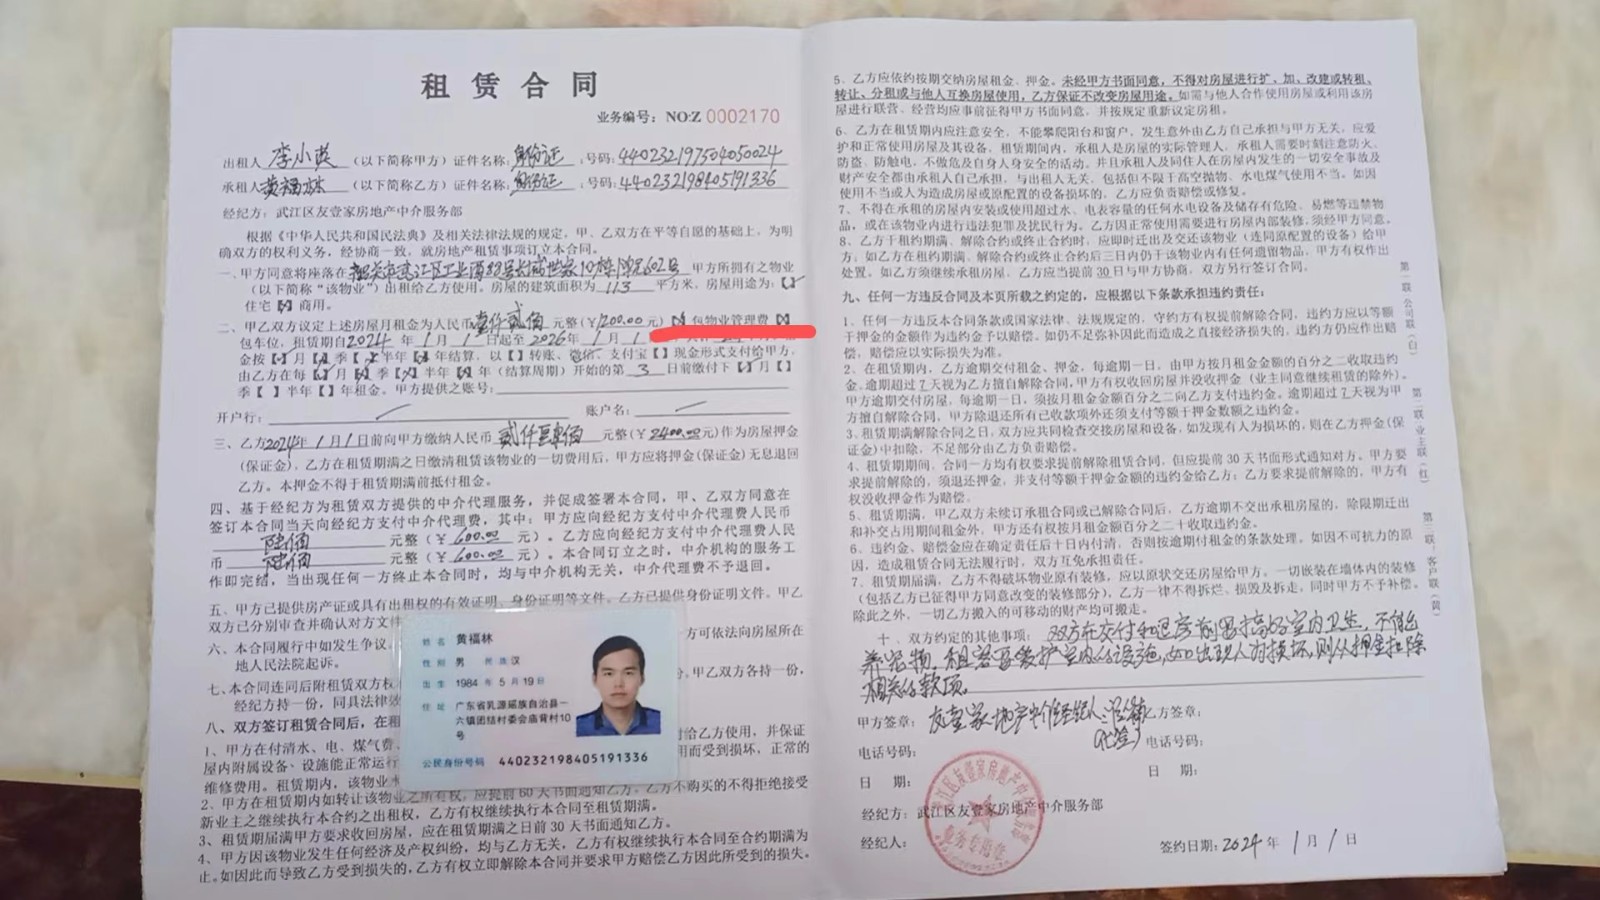 租赁合同
业务编号：NO:Z 0002170
出租人 李小英 （以下简称甲方）证件名称：身份证 ；号码：440232197504050024
承租人 黄福林 （以下简称乙方）证件名称：身份证 ；号码：440232198405191336
经纪方：武江区友壹家房地产中介服务部
根据《中华人民共和国民法典》及相关法律法规的规定，甲、乙双方在平等自愿的基础上，为明
确双方的权利义务，经协商一致，就房地产租赁事项订立本合同。
一、甲方同意将座落在 韶关市武江区工业西88号 世家10栋 602号 甲方所拥有之物业
（以下简称“该物业”）出租给乙方使用。房屋的建筑面积为 113 平方米，房屋用途为：【】
住宅【】商用。
二、甲乙双方议定上述房屋月租金为人民币 壹仟贰佰 元整（￥1200.00元）【】包物业管理费【】
包车位，租赁期自2024年1月1日起至2026年1月1
金按【】月【】季【】半年【】年结算，以【】转账、微信、支付宝【】现金形式支付给甲方，
由乙方在每【】月【】季【】半年【】年（结算周期）开始的第 3 日前缴付下【】月【】
季【】半年【】年租金。甲方提供之账号：
开户行： 账户名：
三、乙方2024年1月1日前向甲方缴纳人民币 贰仟肆佰 元整（￥2400.00元）作为房屋押金
（保证金），乙方在租赁期满之日缴清租赁该物业的一切费用后，甲方应将押金（保证金）无息退回
乙方。本押金不得于租赁期满前抵付租金。
四、基于经纪方为租赁双方提供的中介代理服务，并促成签署本合同，甲、乙双方同意在
签订本合同当天向经纪方支付中介代理费，其中：甲方应向经纪方支付中介代理费人民币
陆佰 元整（￥600.00元）。乙方应向经纪方支付中介代理费人民
币 陆佰 元整（￥600.00元）。本合同订立之时，中介机构的服务工
作即完结，当出现任何一方终止本合同时，均与中介机构无关，中介代理费不予退回。
五、甲方已提供房产证或具有出租权的有效证明、身份证明等文件。乙方已提供身份证明文件。甲乙
双方已分别审查并确认对方文件
六、本合同履行中如发生争议， 方可依法向房屋所在
地人民法院起诉。
七、本合同连同后附租赁双方权 ，甲乙双方各持一份，
经纪方持一份，同具法律效
八、双方签订租赁合同后，在租
1、甲方在付清水、电、煤气费、 付给乙方使用，并保证
屋内附属设备、设施能正常运行 用而受到损坏，正常的
维修费用。租赁期内，该物业
2、甲方在租赁期内如转让该物业之所有权，应提前60天书面通知乙方。乙方不购买的不得拒绝接受
新业主之继续执行本合约之出租权，乙方有权继续执行本合同至租赁期满。
3、租赁期届满甲方要求收回房屋，应在租赁期满之日前30天书面通知乙方。
4、甲方因该物业发生任何经济及产权纠纷，均与乙方无关，乙方有权继续执行本合同至合约期满为
止。如因此而导致乙方受到损失的，乙方有权立即解除本合同并要求甲方赔偿乙方因此所受到的损失。
姓名 黄福林
性别 男 民族 汉
出生 1984年5月19日
住址 广东省乳源瑶族自治县一
六镇团结村委会庙背村10
号
公民身份号码 440232198405191336
5、乙方应依约按期交纳房屋租金、押金。未经甲方书面同意，不得对房屋进行扩、加、改建或转租、
转让、分租或与他人互换房屋使用，乙方保证不改变房屋用途。如需与他人合作使用房屋或利用该房
屋进行联营、经营均应事前征得甲方书面同意，并按规定重新议定房租。
6、乙方在租赁期内应注意安全，不能攀爬阳台和窗户，发生意外由乙方自己承担与甲方无关，应爱
护和正常使用房屋及其设备。租赁期间内，承租人是房屋的实际管理人，承租人需要时刻注意防火、
防盗、防触电，不做危及自身人身安全的活动。并且承租人及同住人在房屋内发生的一切安全事故及
财产安全都由承租人自己承担，与出租人无关，包括但不限于高空抛物、水电煤气使用不当。如因
使用不当或人为造成房屋或原配置的设备损坏的，乙方应负责赔偿或修复。
7、不得在承租的房屋内安装或使用超过水、电表容量的任何水电设备及储存有危险、易燃等违禁物
品，或在该物业内进行违法犯罪及扰民行为。乙方因正常使用需要进行房屋内部装修，须经甲方同意。
8、乙方于租约期满、解除合约或终止合约时，应即时迁出及交还该物业（连同原配置的设备）给甲
方；如乙方在租约期满、解除合约或终止合约后三日内仍于该物业内有任何遗留物品，甲方有权作出
处置。如乙方须继续承租房屋，乙方应当提前30日与甲方协商，双方另行签订合同。
九、任何一方违反合同及本页所载之约定的，应根据以下条款承担违约责任：
1、任何一方违反本合同条款或国家法律、法规规定的，守约方有权提前解除合同，违约方应以等额
于押金的金额作为违约金予以赔偿。如仍不足弥补因此而造成之直接经济损失的，违约方仍应作出赔
偿，赔偿应以实际损失为准。
2、在租赁期内，乙方逾期交付租金、押金，每逾期一日，由甲方按月租金金额的百分之二收取违约
金。逾期超过7天视为乙方擅自解除合同，甲方有权收回房屋并没收押金（业主同意继续租赁的除外）。
甲方逾期交付房屋，每逾期一日，须按月租金金额百分之二向乙方支付违约金。逾期超过7天视为甲
方擅自解除合同，甲方除退还所有已收款项外还须支付等额于押金数额之违约金。
3、租赁期满解除合同之日，双方应共同检查交接房屋和设备，如发现有人为损坏的，则在乙方押金（保
证金）中扣除，不足部分由乙方负责赔偿。
4、租赁期期间，合同一方均有权要求提前解除租赁合同，但应提前30天书面形式通知对方。甲方要
求提前解除的，须退还押金，并支付等额于押金金额的违约金给乙方；乙方要求提前解除的，甲方有
权没收押金作为赔偿。
5、租赁期满，甲乙双方未续订承租合同或已解除合同后，乙方逾期不交出承租房屋的，除限期迁出
和补交占用期间租金外，甲方还有权按月租金额百分之二十收取违约金。
6、违约金、赔偿金应在确定责任后十日内付清，否则按逾期付租金的条款处理。如因不可抗力的原
因，造成租赁合同无法履行时，双方互免承担责任。
7、租赁期届满，乙方不得破坏物业原有装修，应以原状交还房屋给甲方。一切嵌装在墙体内的装修
（包括乙方已征得甲方同意改变的装修部分），乙方一律不得拆烂、损毁及拆走，同时甲方不予补偿。
除此之外，一切乙方搬入的可移动的财产均可搬走。
十、双方约定的其他事项：双方在交付和退房前需搞好室内卫生，不能
养宠物，租客要爱护室内的设施，如出现人为损坏，则从押金扣除
相关的款项。
甲方签章：友壹家地产中介经纪人 乙方签章：
（代签）
电话号码： 电话号码：
日 期： 日 期：
经纪方：武江区友壹家房地产中介服务部
经纪人： 签约日期：2024年1月1日
武江区友壹家房地产中介服务部
业务专用章
第一联：公司联（白）
第二联：业主联（红）
第三联：客户联（黄）